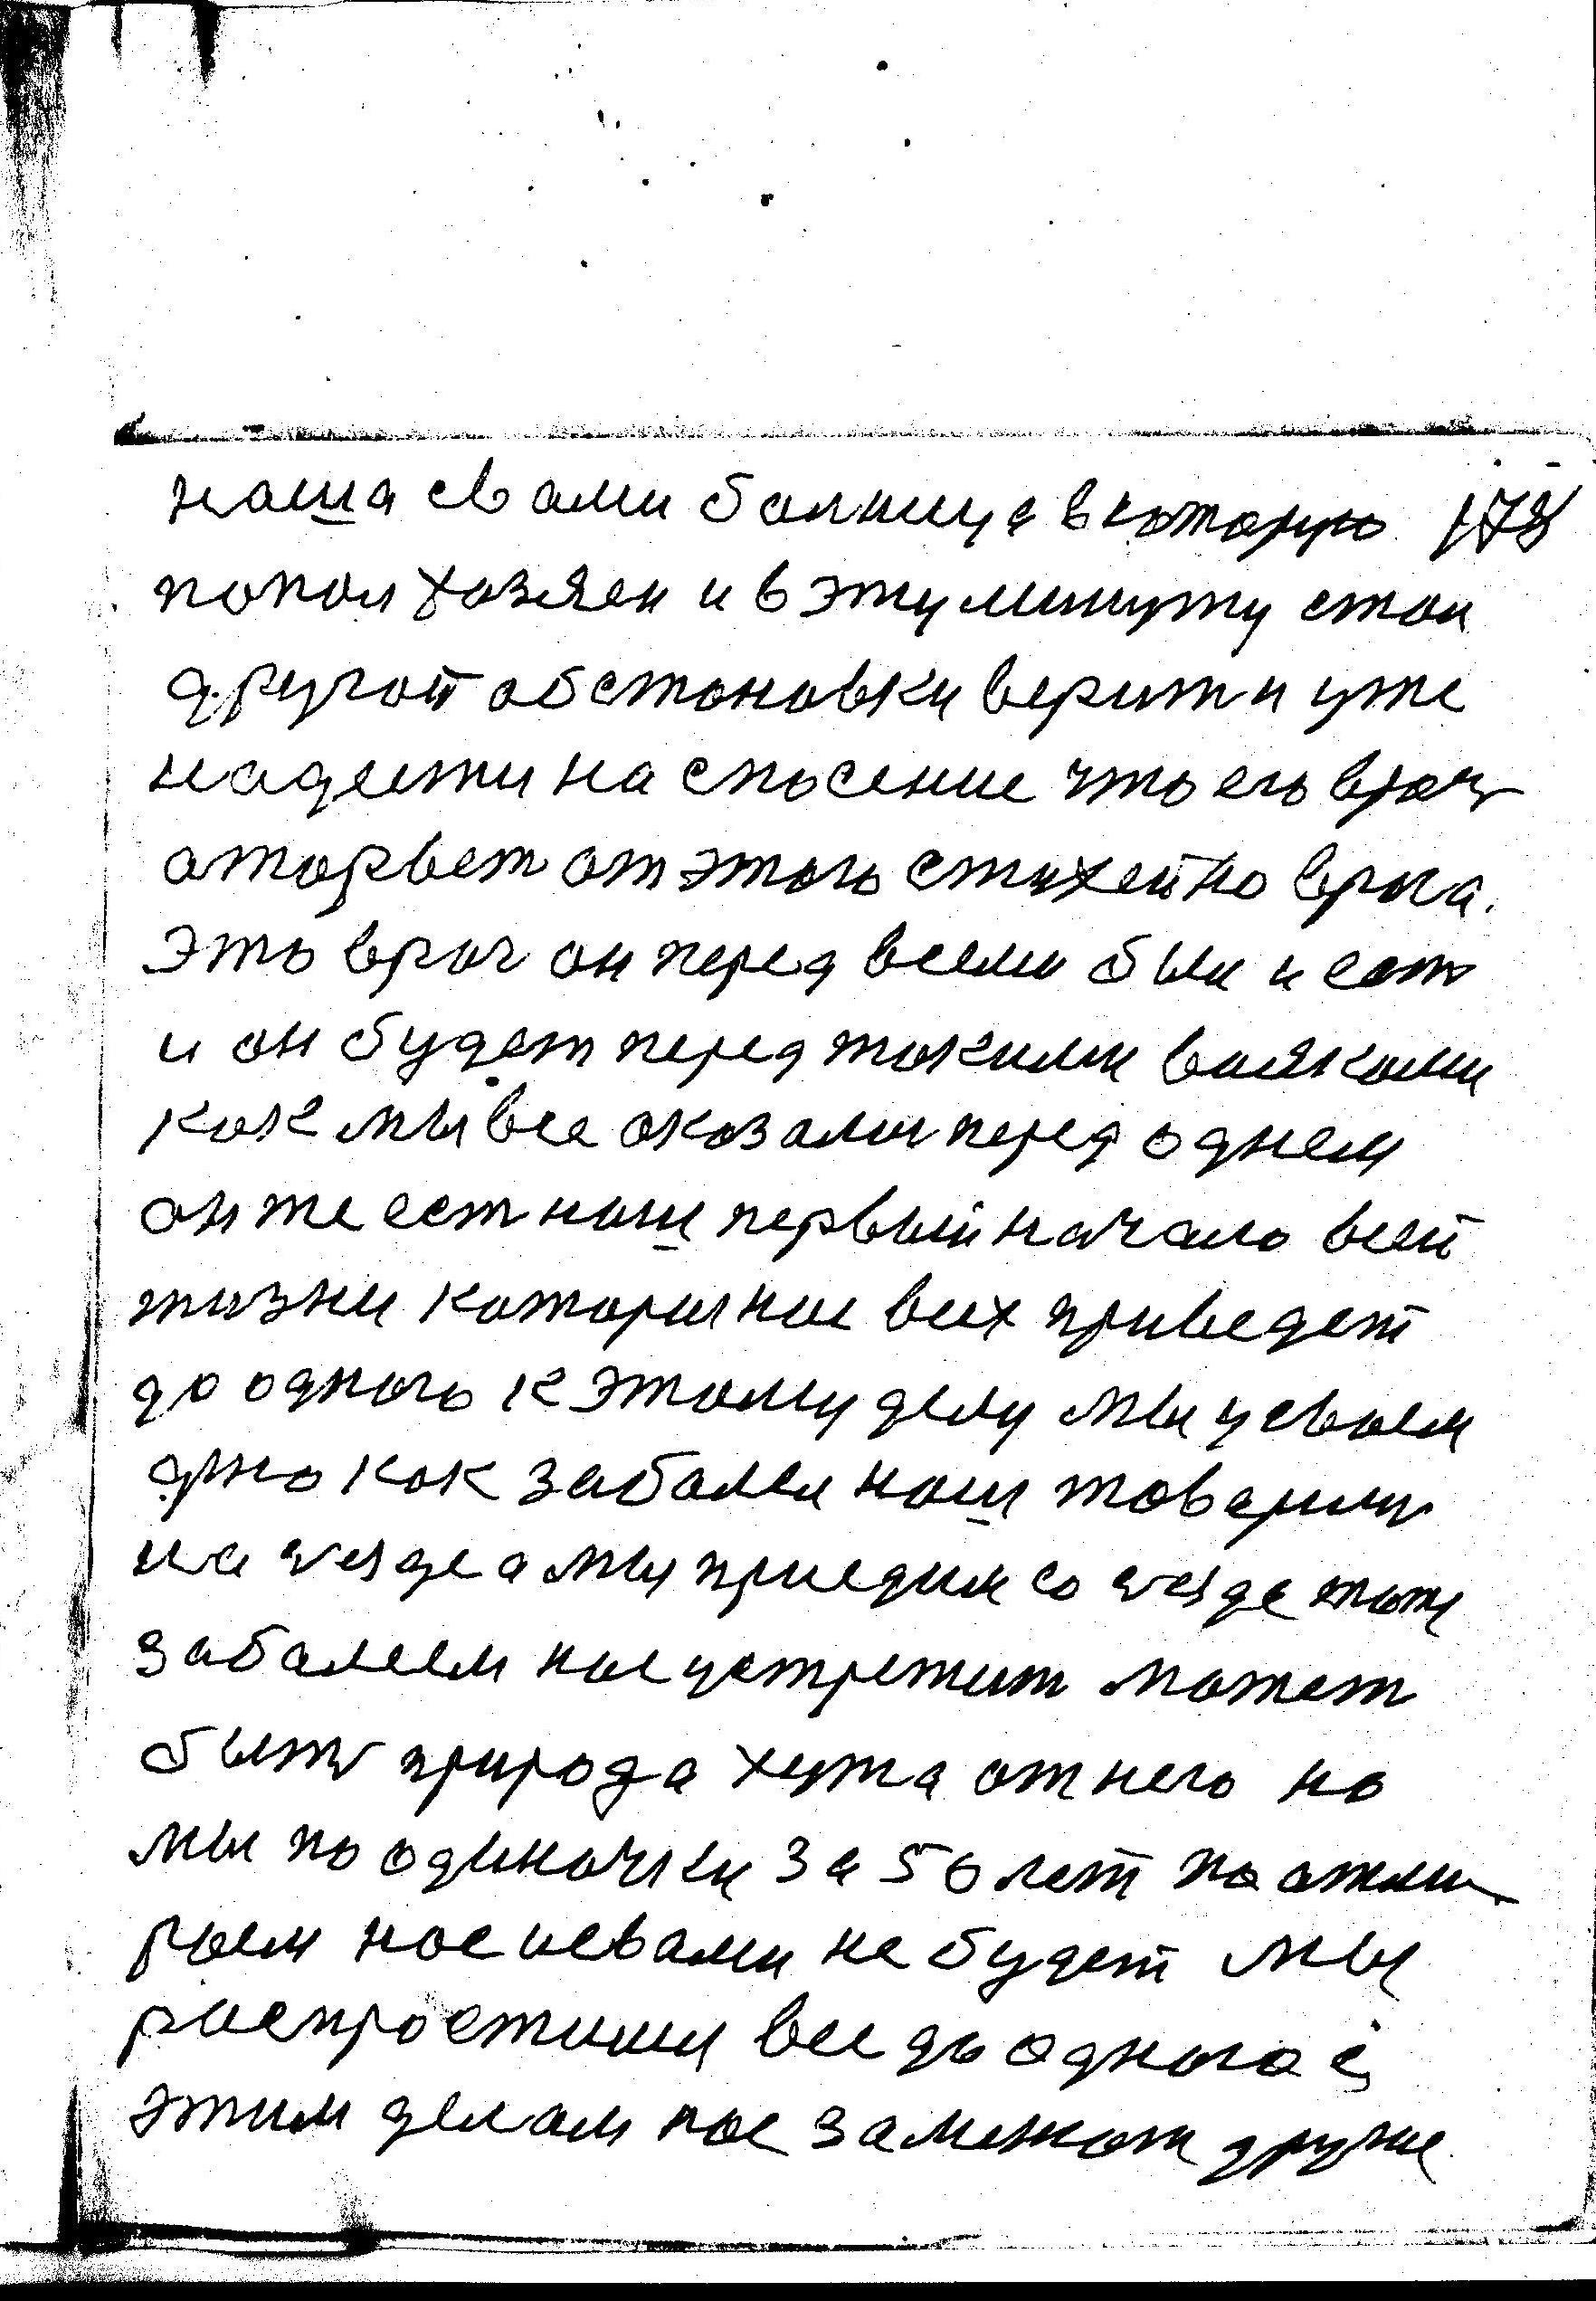 наша свами балница вкоторую 178
попол хазяен и в эту минуту стои
другой обстоновки верит и уже
надеети на спосение что его врач
аторвет от этого стихейно врага.
Это враг он перед всеми был и есть
и он будет перед такими вояками
как мы все оказалис перед однем
он же ест наш первый начало всей
жизни которыи нас всех приведет
до одного к этому делу мы усваем
как забалел наш товарищ
а мы приедим со тоже
забалеем нас устретит может
быть природа хужа от него но
мы по одиночки за 50 лет по атми
раем нас исвами не будет мы
распростимся все до одного с
этим делам нас заменют другие